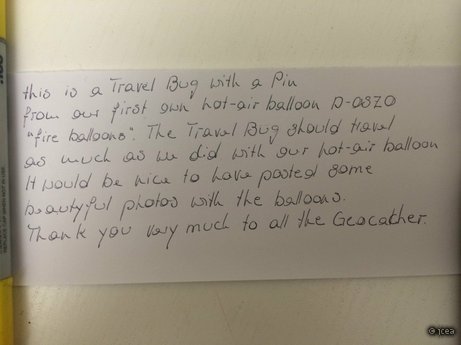 this is a Travel Bug with a Pin
from our first own hot-air balloon D-OSZO
"fire balloons". The Travel Bug should travel
as much as we did with our hot-air balloon
It would be nice to have posted some
beautyful photos with the balloons.
Thank you very much to all the Geocacher.
© jcea